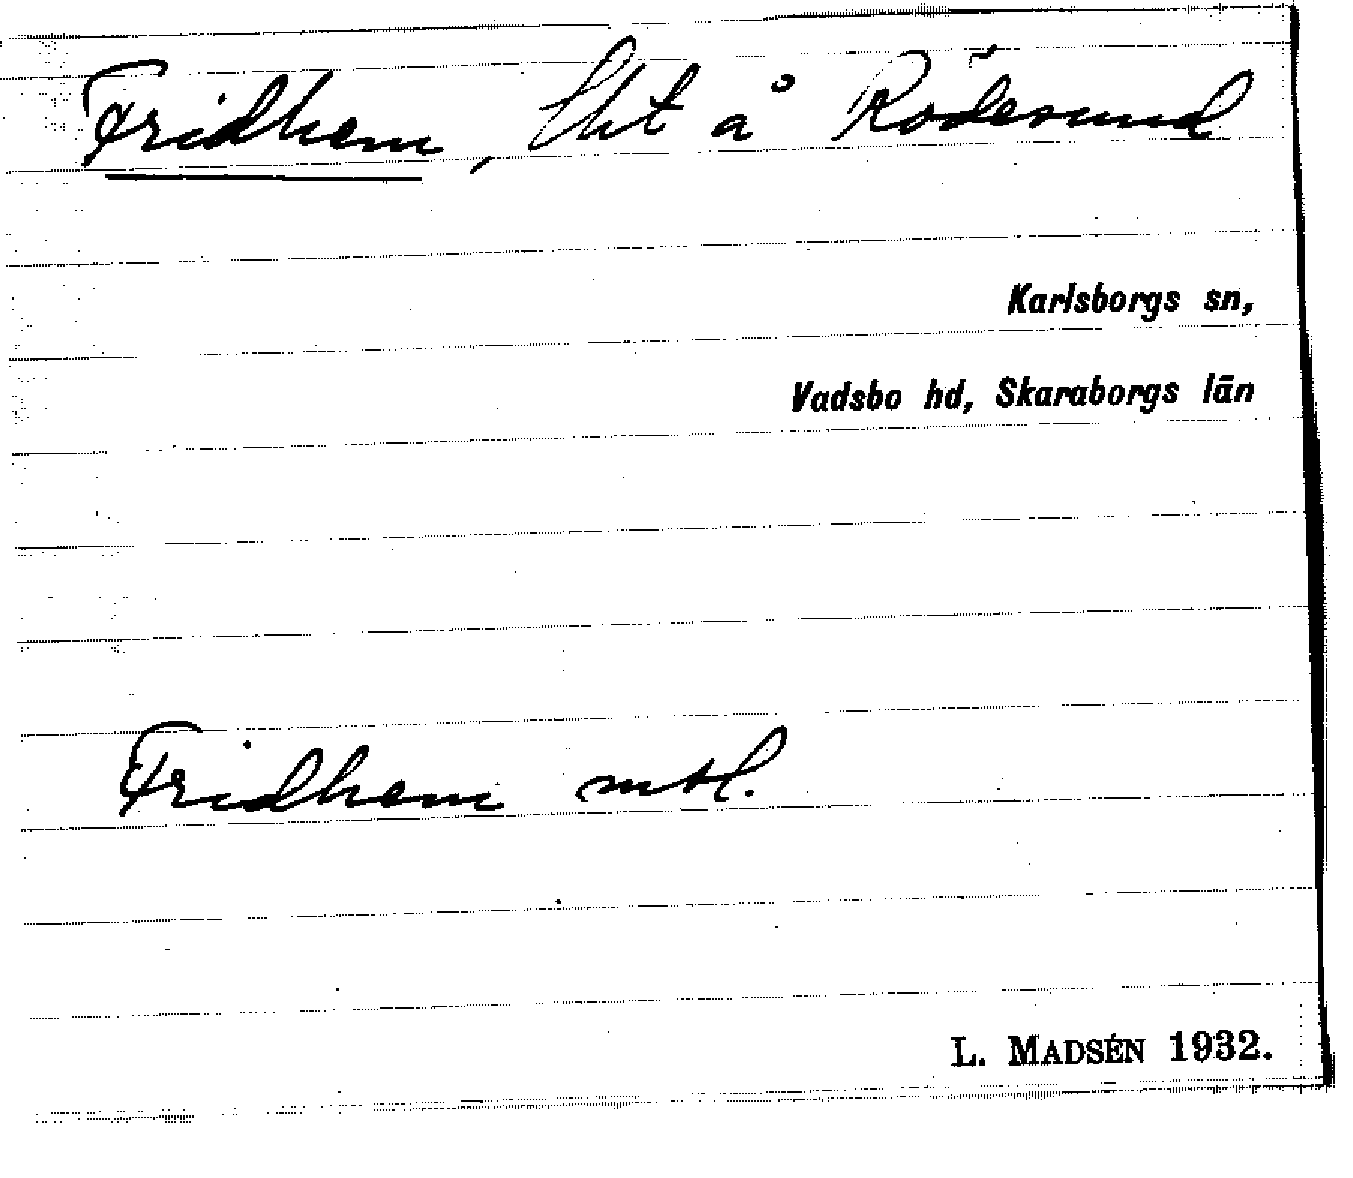 Fridhem, lht å Rödesund
Karlsborgs sn,
Vadsbo hd, Skaraborgs län
Fridhem mtl.
L. MADSÉN 1932.